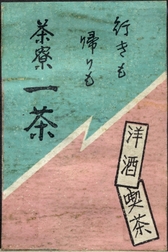 行きも
帰りも
茶寮一茶
洋酒
喫茶